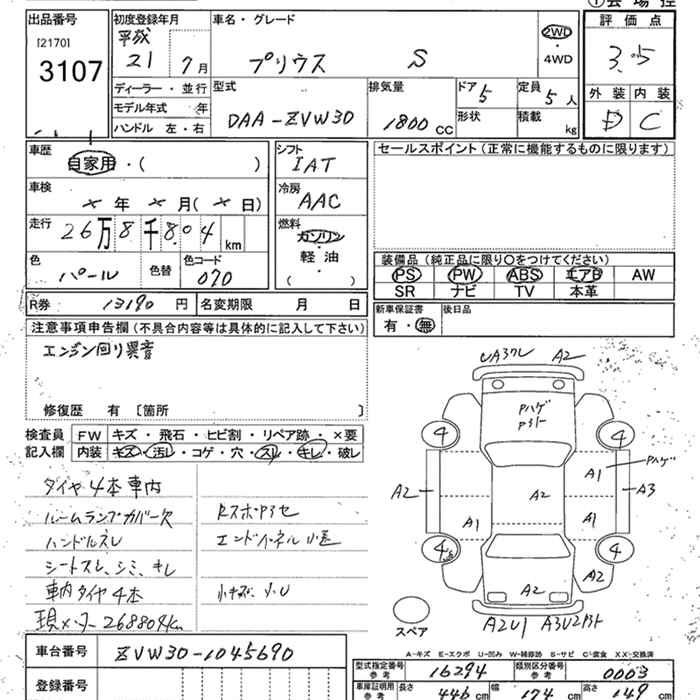 ①会場控
出品番号 初度登録年月 車名・グレード 評価点
[2170] 平成
3107 21 7月 プリウス S 2WD・4WD 3.5
ディーラー・並行 型式 排気量 ドア 5 定員 5人 外装 内装
モデル年式 年 DAA-ZVW30 1800cc 形状 積載 kg D C
ハンドル 左・右
車歴 自家用・( ) シフト IAT セールスポイント(正常に機能するものに限ります)
車検 × 年 × 月(× 日) 冷房 AAC
走行 26万8千804km 燃料 ガソリン・軽油・( )
色 パール 色替 色コード 070
装備品(純正品に限り○をつけてください)
PS PW ABS エアB AW
SR ナビ TV 本革
R券 13190円 名変期限 月 日 新車保証書 有・無 後日品
注意事項申告欄(不具合内容等は具体的に記入して下さい)
エンジン回り異音
修復歴 有 [箇所 ]
検査員 FW キズ・飛石・ヒビ割・リペア跡・×要
記入欄 内装 キズ・汚レ・コゲ・穴・スレ・キレ・破レ
タイヤ4本車内
ルームランプカバー欠
ハンドルスレ
シートスレ、シミ、キレ
車内タイヤ4本
現メーター268804km
小キズ、小U
A2
Pハゲ
4 4
A1 Pハゲ
A2 A2 A3
A1 A1
4 4
A2 A2
スペア A2U1
A-キズ E-エクボ U-凹み W-補修跡 S-サビ C-腐食 XX-交換済
車台番号 ZVW30-1045690
型式指定番号 参考 16294 類別区分番号 参考 0003
登録番号 車庫証明用 参考 長さ 446cm 幅 174cm 高さ 149cm